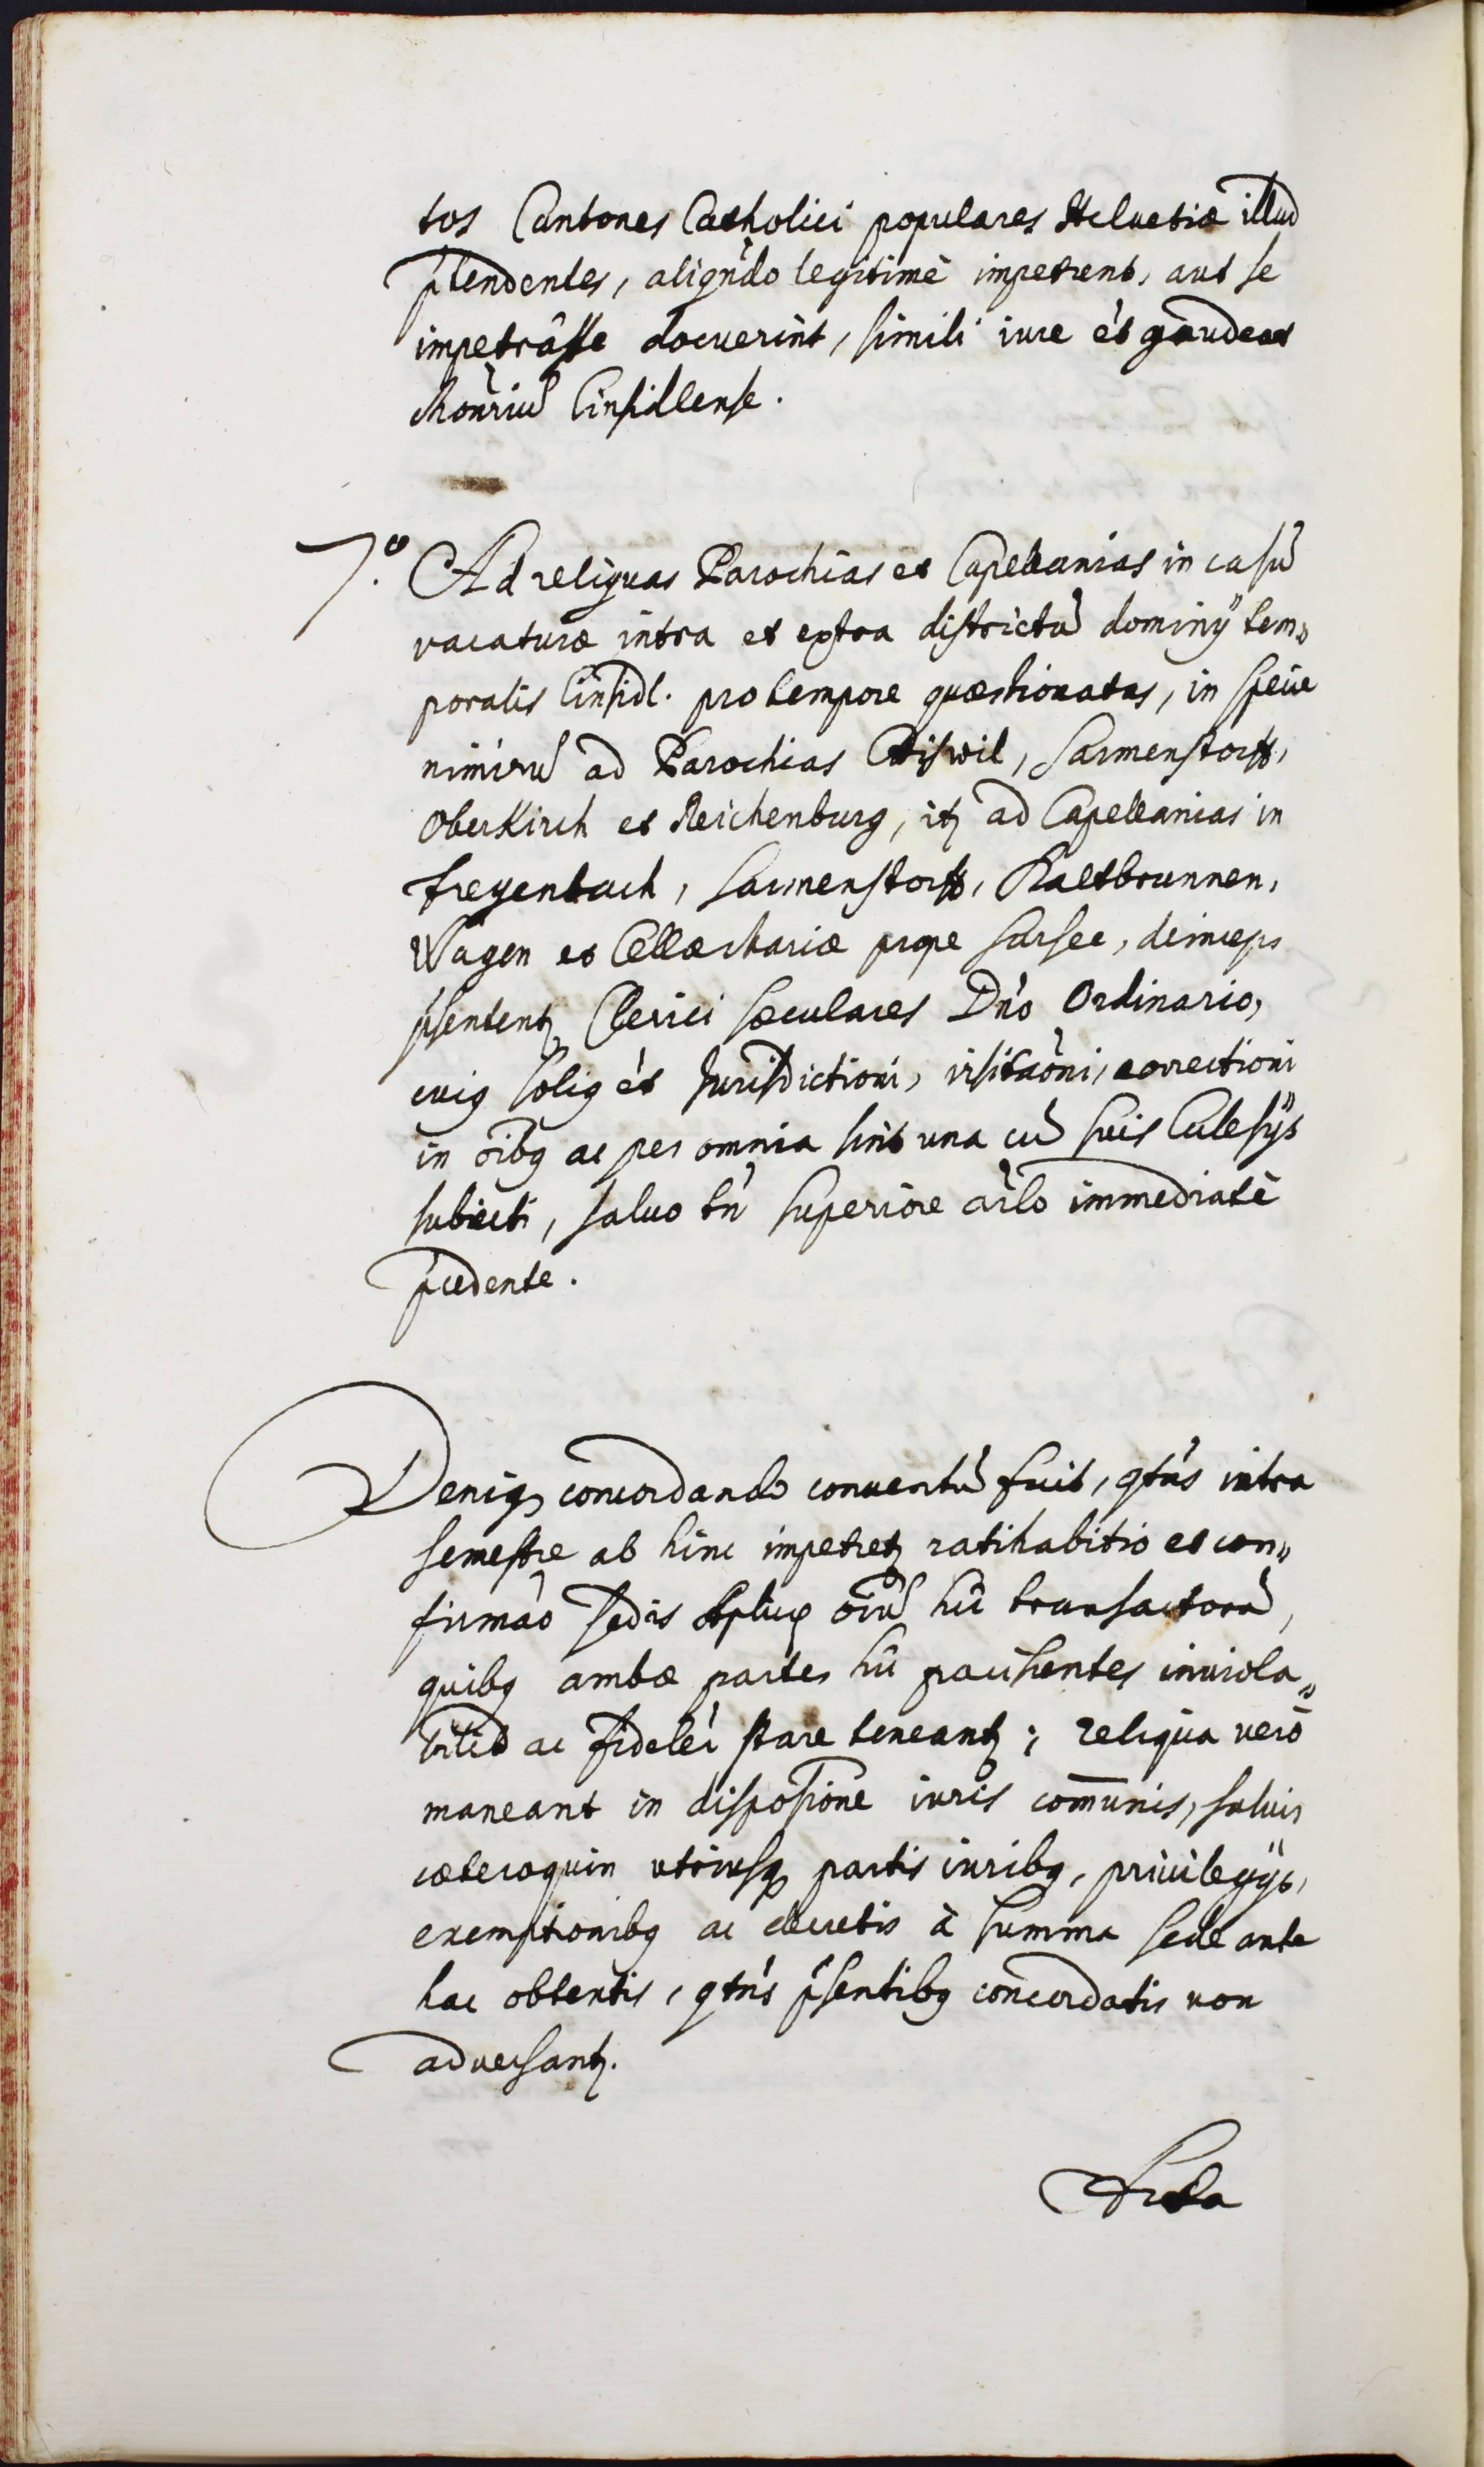 tos Cantones Catholici populares Helvetiæ illud
p̄tendentes, aliqn̄do legitimè impetrent, aut se
impetrâsse docuerint, simili iure èt gaudeat
Monr̄iū Einsidlense.
7.º Ad reliquas Parochias et Capellanias in casū
vacaturæ intra et extra districtū dominÿ tem„
poralis Einsidl. pro tempore quæstionatas, in specie
nimirū ad Parochias Ettiswil, Sarmenstorff,
Oberkirch et Reichenburg, itꝫ ad Capellanias in
Freyenbach, Sarmenstorff, Kaltbrunnen,
Wagen et Cellæ Mariæ prope Sursee, deinceps
p̄sententꝫ Clerici sæculares Dn̄o Ordinario,
cuiꝰ soliꝰ èt Jurisdictioni, visitaōni, correctioni
in oībꝰ ac per omnia sint una cū suis Ecclesÿs
subiecti, saluo tn̄ superiore ar̄lo immediatè
p̄cedente.
Deniqꝫ concordando conventū fuit, qtn̄s intra
semestre ab hinc impetretꝫ ratihabitio et con„
firmaō Sedis Aplicæ oīū hīc transactorū,
quibꝰ ambæ partes hīc paciscentes inviola„
bilit̄ ac fidelr̄ stare teneantꝫ; reliqua verò
maneant in disposīone iuris com̄unis, salvis
cæteroquin utriusqꝫ partis iuribꝰ, privilegÿs,
exemptionibꝰ ac decretis à summa sede ante
hac obtentis, qtn̄s p̄sentibꝰ concordatis non
adversantꝫ.
Acta